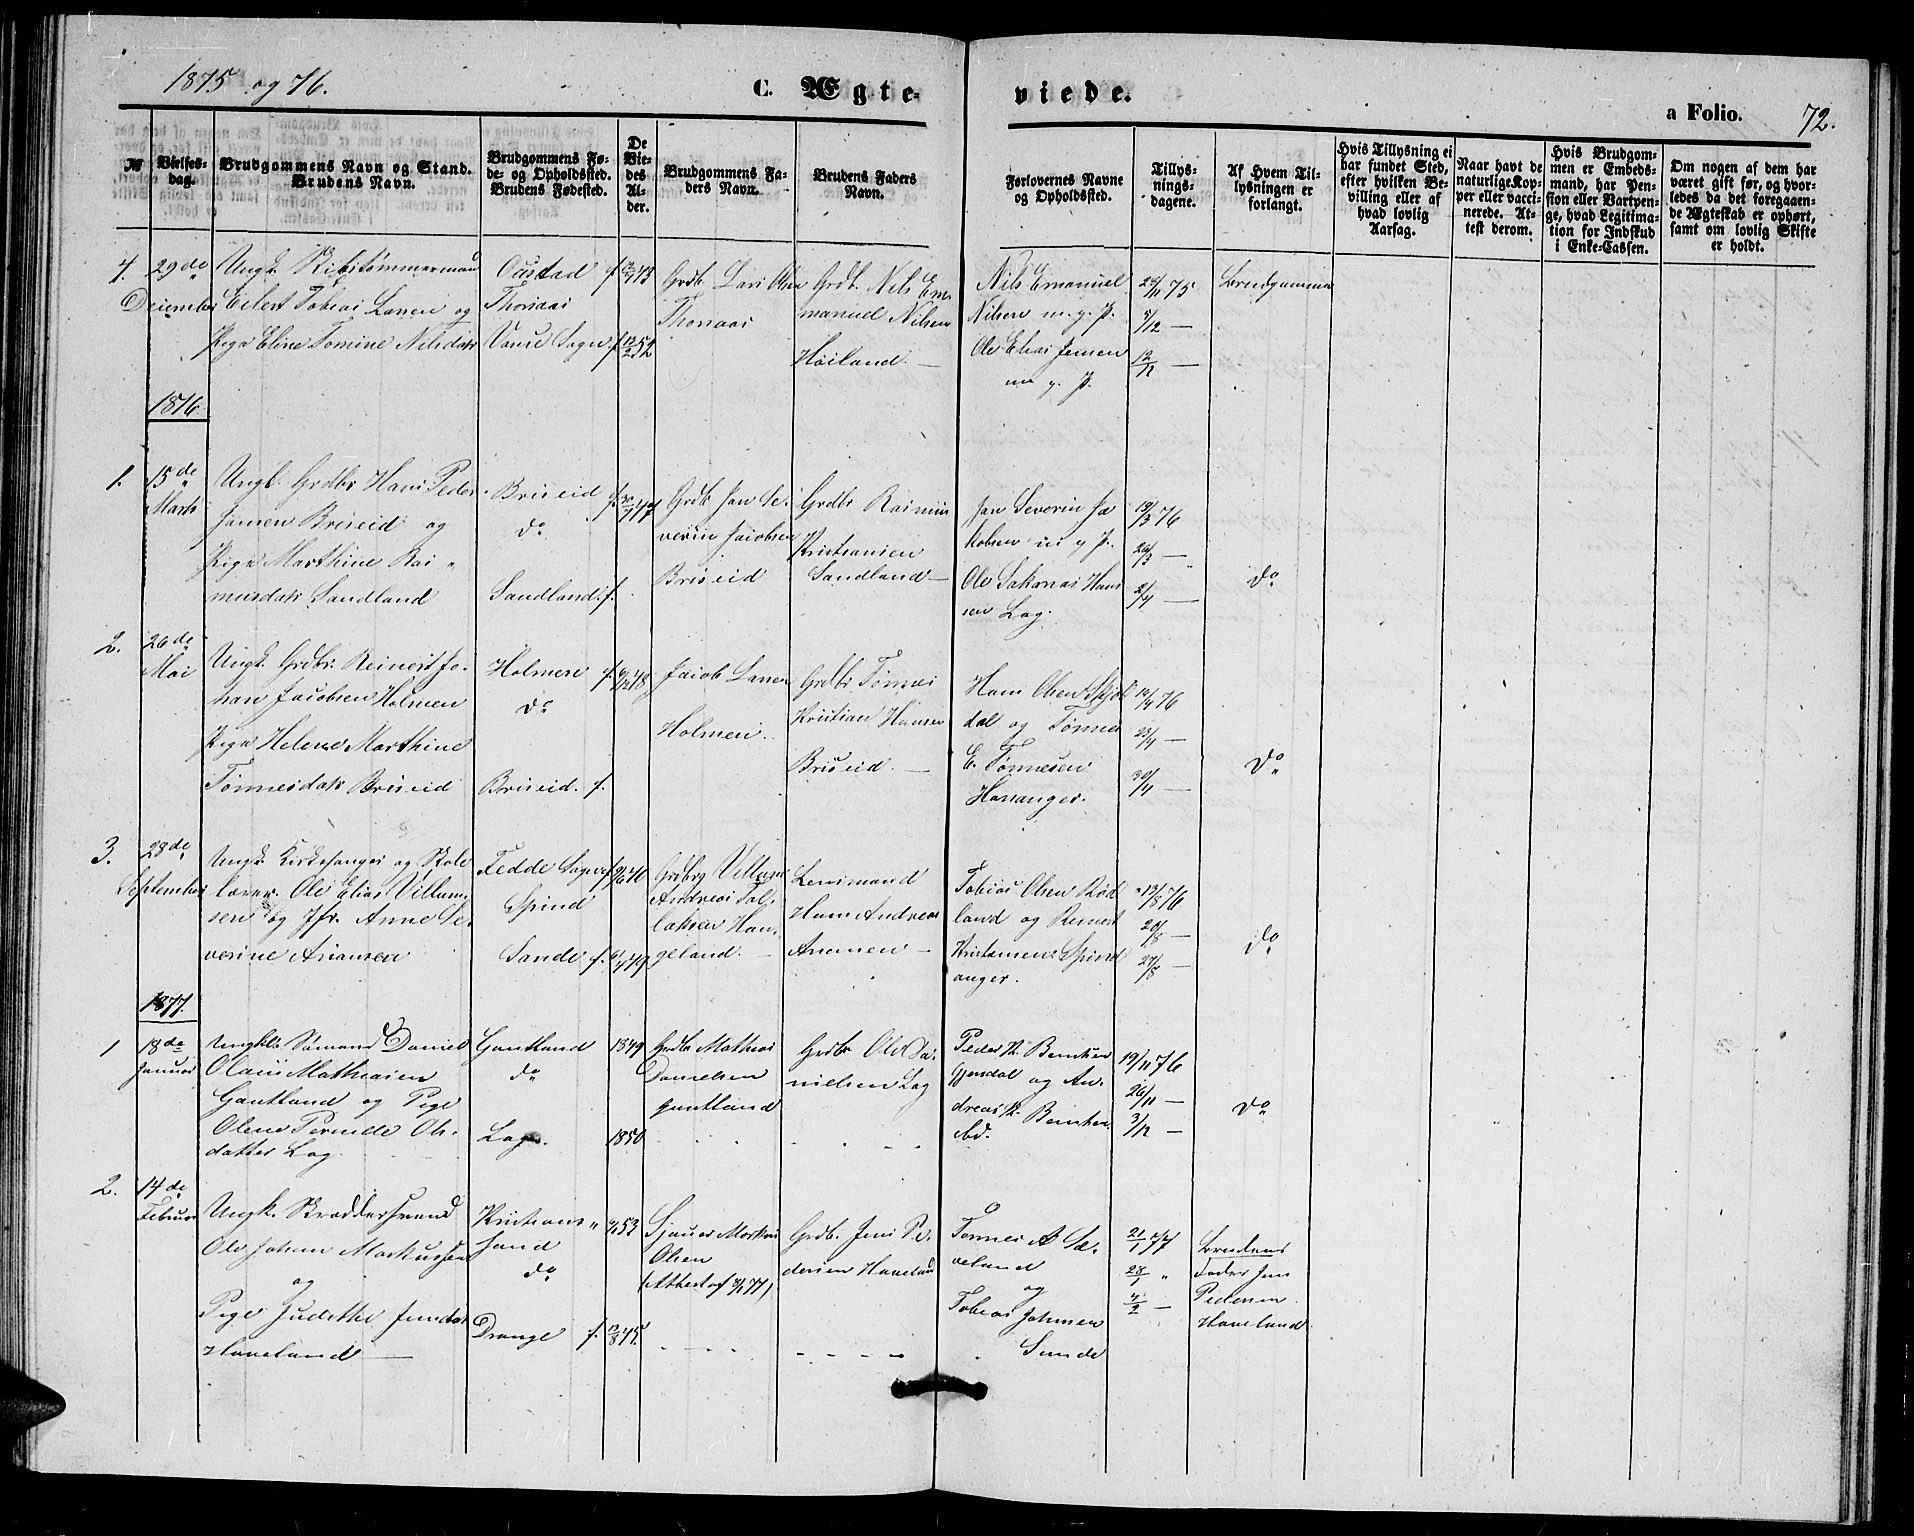 1875 og 76.
C. Ægte-
viede.
a Folio. 72.
№
Vielses-
dag.
Brudgommens Navn og Stand.
Brudens Navn.
Brudgommens Fø-
de- og Opholdssted.
Brudens Fødested.
De
Vie-
des
Al-
der.
Brudgommens Fa-
ders Navn.
Brudens Faders
Navn.
Forlovernes Navne
og Opholdssted.
Tillys-
nings-
dagene.
Af Hvem Til-
lysningen er
forlangt.
Hvis Tillysning ei
har fundet Sted,
efter hvilken Be-
villing eller af
hvad lovlig
Aarsag.
Naar havt de
naturlige Kop-
per eller vacci-
nerede. At-
test derom.
Hvis Brudgom-
men er Embeds-
mand, har Pen-
sion eller Vartpen-
ge, hvad Legitima-
tion for Indskud
i Enke-Cassen.
Om nogen af dem har
været gift før, og hvor-
ledes da det foregaaen-
de Ægteskab er ophørt,
samt om lovlig Skifte
er holdt.
4.
29de
December
Ungk. Skibstømmermand
Eilert Tobias Larsen og
Pige Eline Tomine Nilsdatr
Thorsaas
Vanse Sogn f.
Grdb. Lars Olsen
Thorsaas
Grdb. Nils Em-
manuel Nilsen
Høiland. —
Nils Emanuel
Nilsen m. g. P.
Ole Elias Jensen
m g. P.
28/11 75
5/12 —
12/12 —
Brudgommen
1876.
1.
15de
Marts
Ungk. Grdbr Hans Peder
Jansen Briseid og
Pige Marthine Ras-
musdatr Sandland
Briseid f.
do
Sandland f.
30/7 47
Grdb Jan Se-
verin Jacobsen
Briseid
Grdbr Rasmus
Kristiansen
Sandland —
Jan Severin Ja
kobsen m g P.
Ole Zakarias Hans
sen Log.
19/3 76
26/3 —
2/4 —
do
2.
26de
Mai
Ungk. Grdbr. Reinert Jo-
han Jacobsen Holmen
Pige Helene Marthine
Tønnesdatr Briseid
Holmen f.
do
Briseid. f.
Jacob Larsen
Holmen.
Grdbr Tønnes
Kristian Hansen
Briseid. —
Hans Olsen Skjol
dal og Tønnes
E. Tønnesen
Hananger.
16/4 76
23/4 —
30/4 —
do
3.
28de
September
Ungk. Kirkesanger og Skole
lærer Ole Elias Villum-
sen og Jfr. Anne Se-
verine Aanensen
Fedde Sogn f.
Spind
Sande f.
Grdbrg Villum
Andreas Tol-
laksen Hau-
geland. —
Lensmand
Hans Andreas
Aanensen —
Tobias Olsen Rød
land og Reinert
Kristiansen Spind
anger.
13/8 76
20/8 —
27/8 —
do
1877.
1
18de
Januar
Ungkl. Sømand Daniel
Olaus Mathiasen
Gautland og Pige
Olene Pernille Ols-
datter Log.
Gautland
do
Log.
1849
1850
Grdbr Mathias
Danielsen
Gautland
Grdbr Ole Da-
nielsen Log
Peder K. Berntsen
Gjersdal og An-
dreas K. Berntsen
ibd.
19/11 76
26/11 —
3/12 —
do
2.
14de
Februar
Ungk. Skræddersvend
Ole Johan Markussen
og
Pige Judithe Jensdatr
Haveland —
Kristians-
sand
do
Drange f.
Sjouer Markus
Olsen
Grdb. Jens Pe-
dersen Haveland
Tønnes A Sæ-
veland
og
Tobias Johnsen
Sunde
21/1 77
28/1 "
4/2 —
Brudens
Fader Jens
Pedersen
Haveland